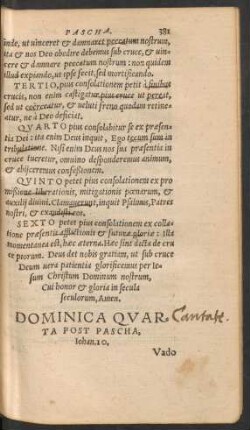 PASCHA. 381
sunde, ut uinceret & damnaret peccatum nostrum,
ita & nos Deo obedire debemus sub cruce, & uin-
cere & damnare peccatum nostrum: non quidem
illud expiando, ut ipse fecit, sed mortificando.
TERTIO, pius consolationem petit à finibus
crucis, non enim castigatur, pius cruce ut pereat,
sed ut exerceatur, & ueluti freno quodam retine-
atur, ne à Deo deficiat.
QVARTO pius consolabitur se ex præsen-
tia Dei: ita enim Deus inquit, Ego tecum sum in
tribulatione. Nisi enim Deus nos sua præsentia in
cruce tueretur, omnino desponderemus animum,
& abijceremus confessionem.
QVINTO petet pius consolationem ex pro-
missione liberationis, mitigationis pœnarum, &
auxilij diuini. Clamauerunt, inquit Psalmus, Patres
nostri, & exaudisti eos.
SEXTO petet pius consolationem ex colla-
tione præsentis afflictionis & futuræ gloriæ: Ista
momentanea est, hæc æterna. Hæc sint dicta de cru
ce piorum. Deus det nobis gratiam, ut sub cruce
Deum uera patientia glorificemus per Ie-
sum Christum Dominum nostrum,
Cui honor & gloria in secula
seculorum, Amen.
DOMINICA QVAR Cantate.
TA POST PASCHA,
Iohan. 10.
Vado